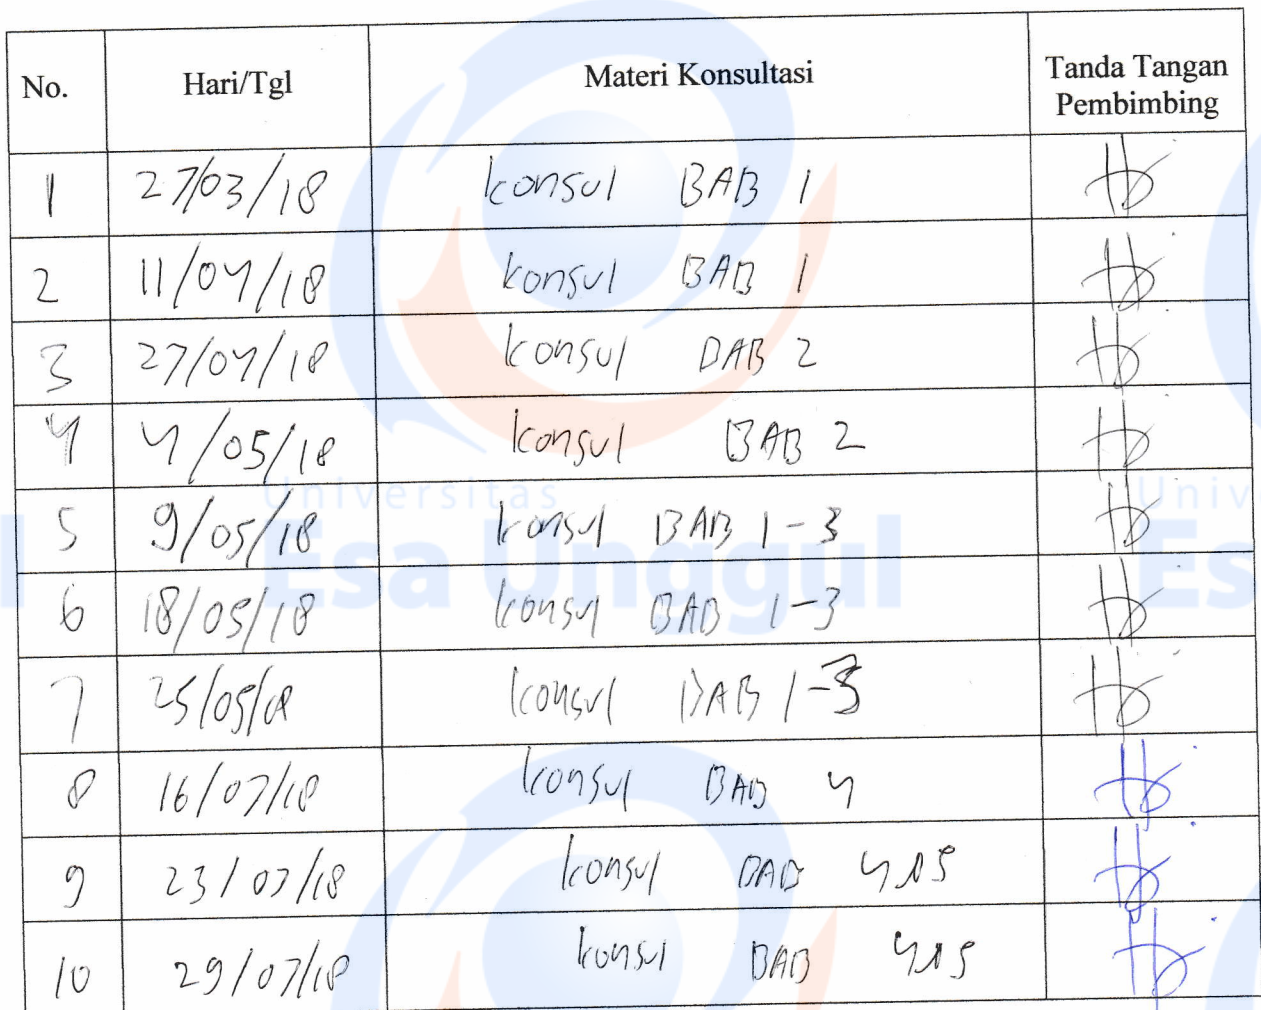 No. Hari/Tgl Materi Konsultasi Tanda Tangan Pembimbing
1 27/03/18 konsul BAB 1
2 11/04/18 konsul BAB 1
3 27/04/18 konsul BAB 2
4 4/05/18 konsul BAB 2
Universitas Univ
5 9/05/18 konsul BAB 1-3
Esa Unggul Es
6 18/05/18 konsul BAB 1-3
7 25/05/18 konsul BAB 1-3
8 16/07/18 konsul BAB 4
9 23/07/18 konsul BAB 4
10 29/07/18 konsul BAB 4